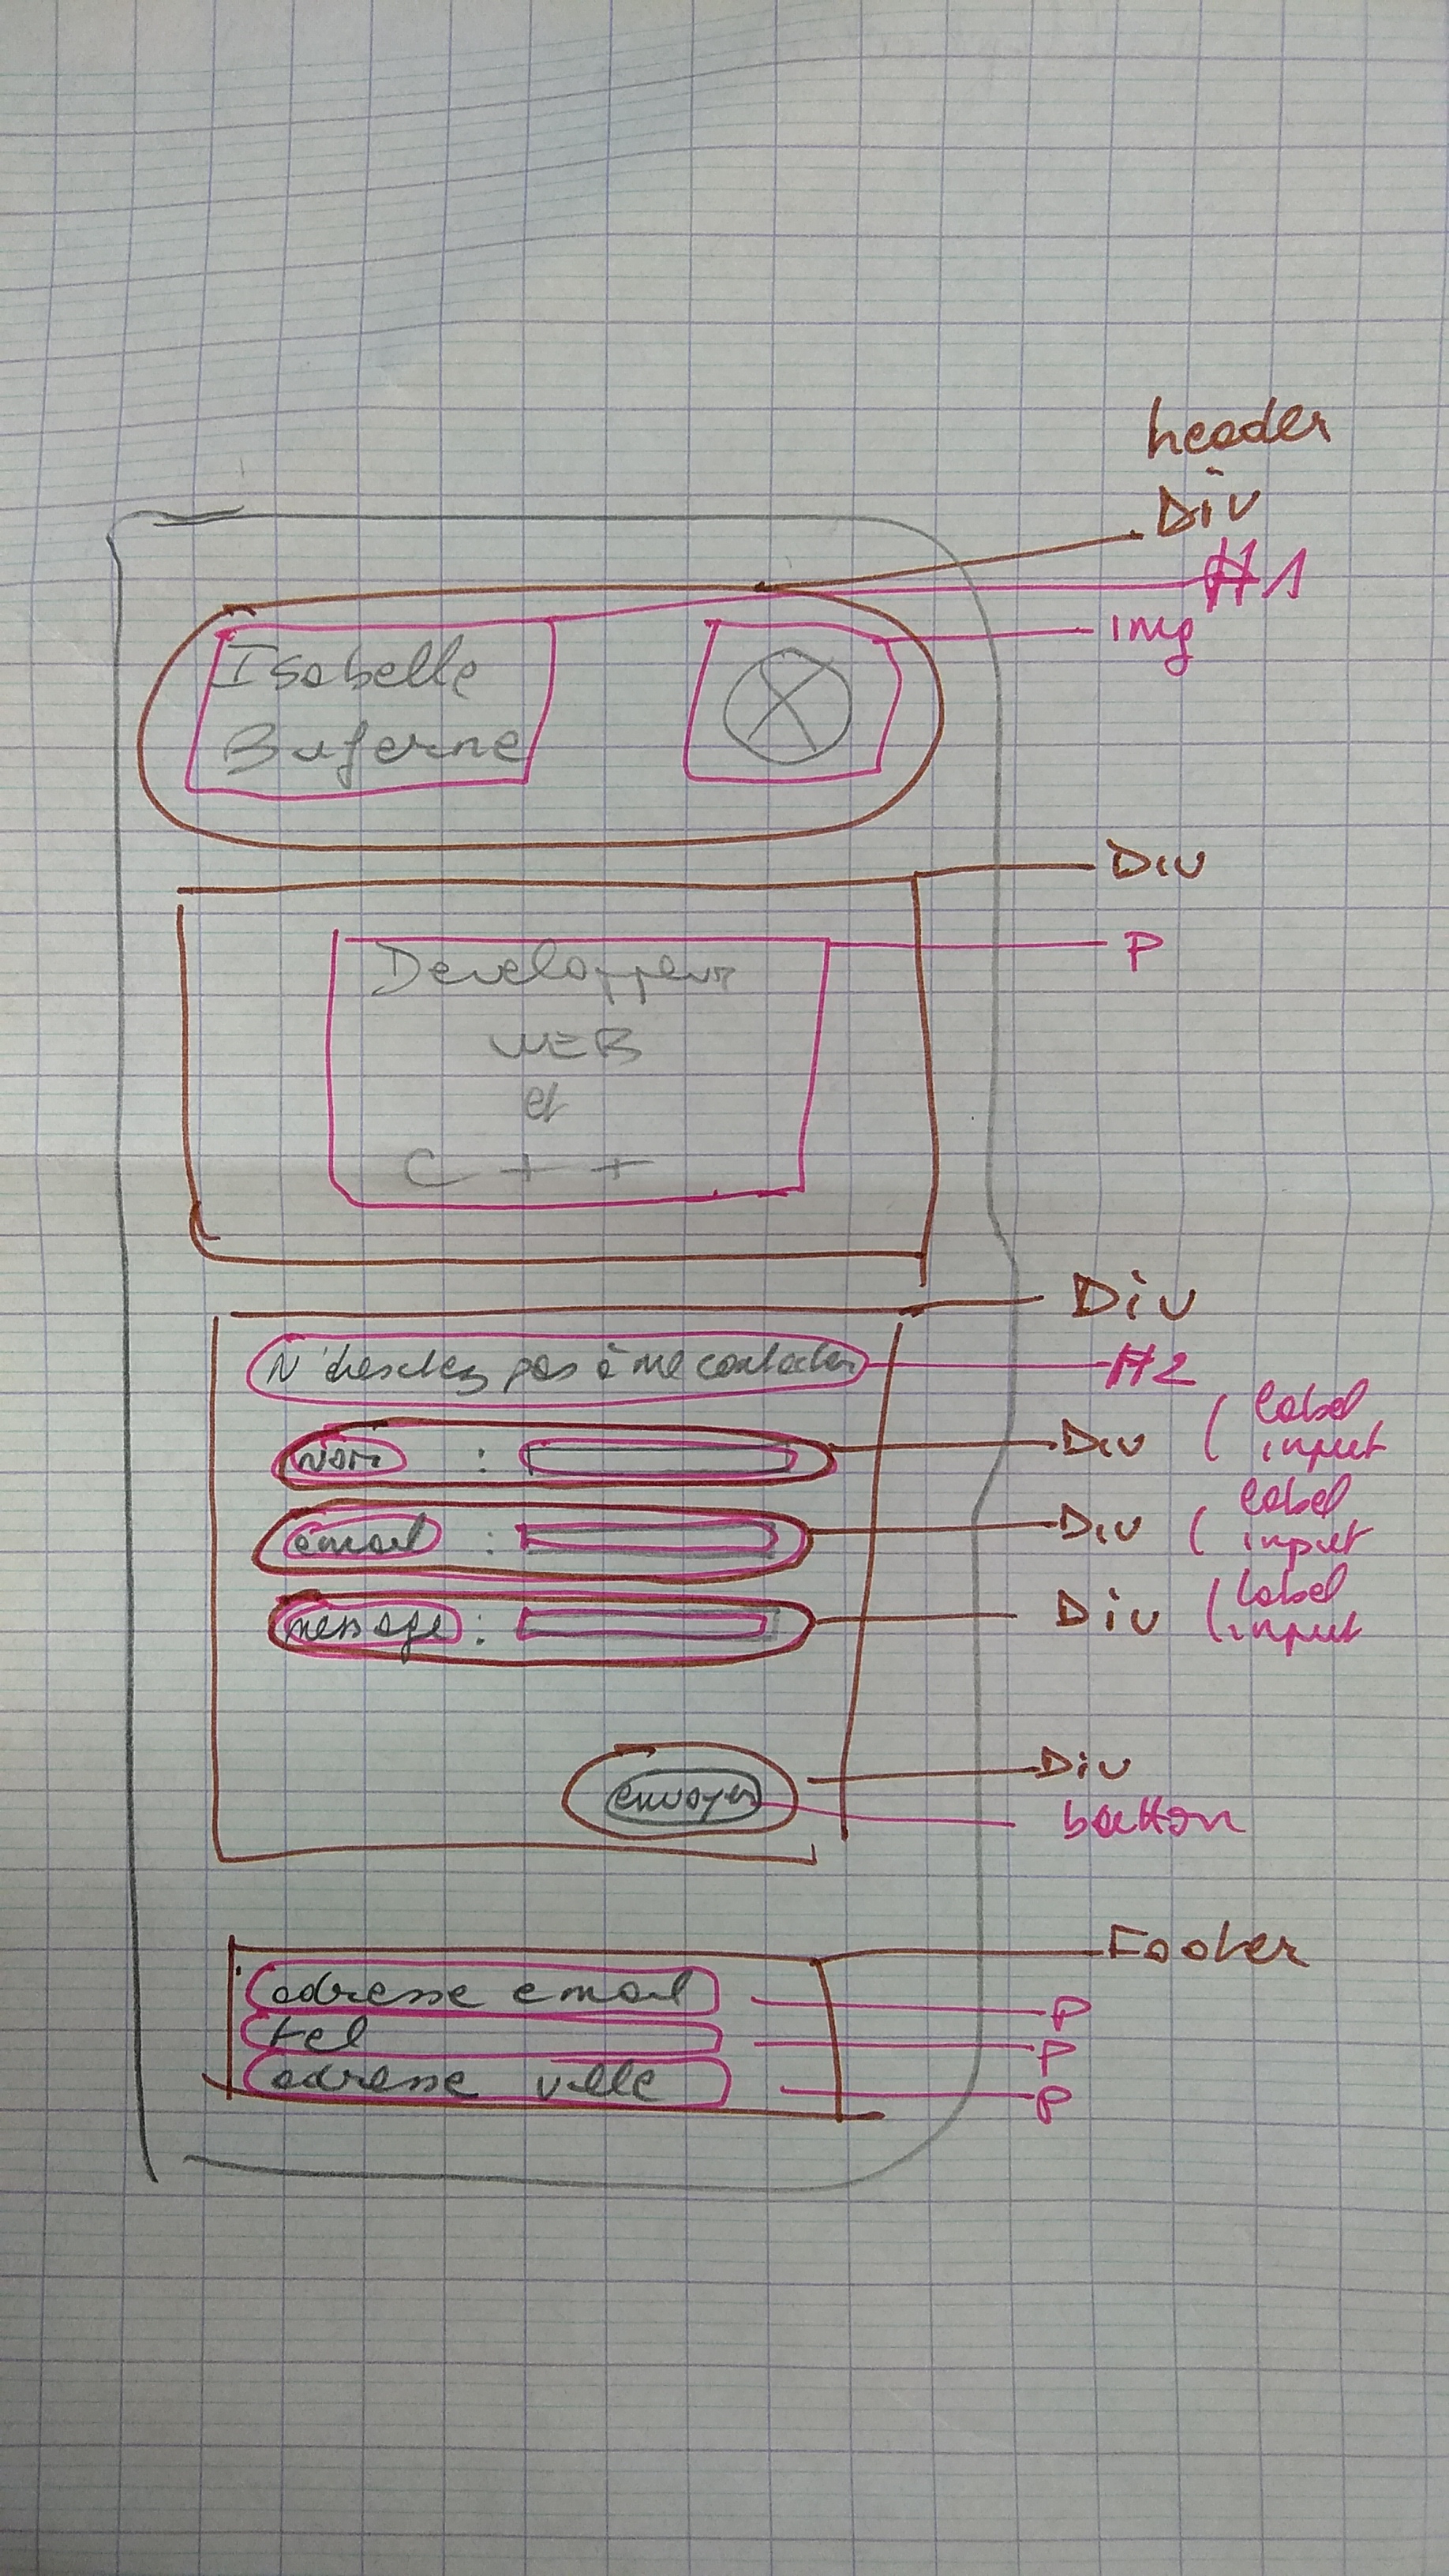 header
Div
H1
img
Isabelle
Buferne
Div
P
Developpeur
WEB
et
C++
Div
N'hesitez pas à me contacter
H2
nom :
Div ( label
input
email :
Div ( label
input
message :
Div ( label
input
envoyer
Div
button
Footer
adresse email
P
tel
P
adresse ville
P